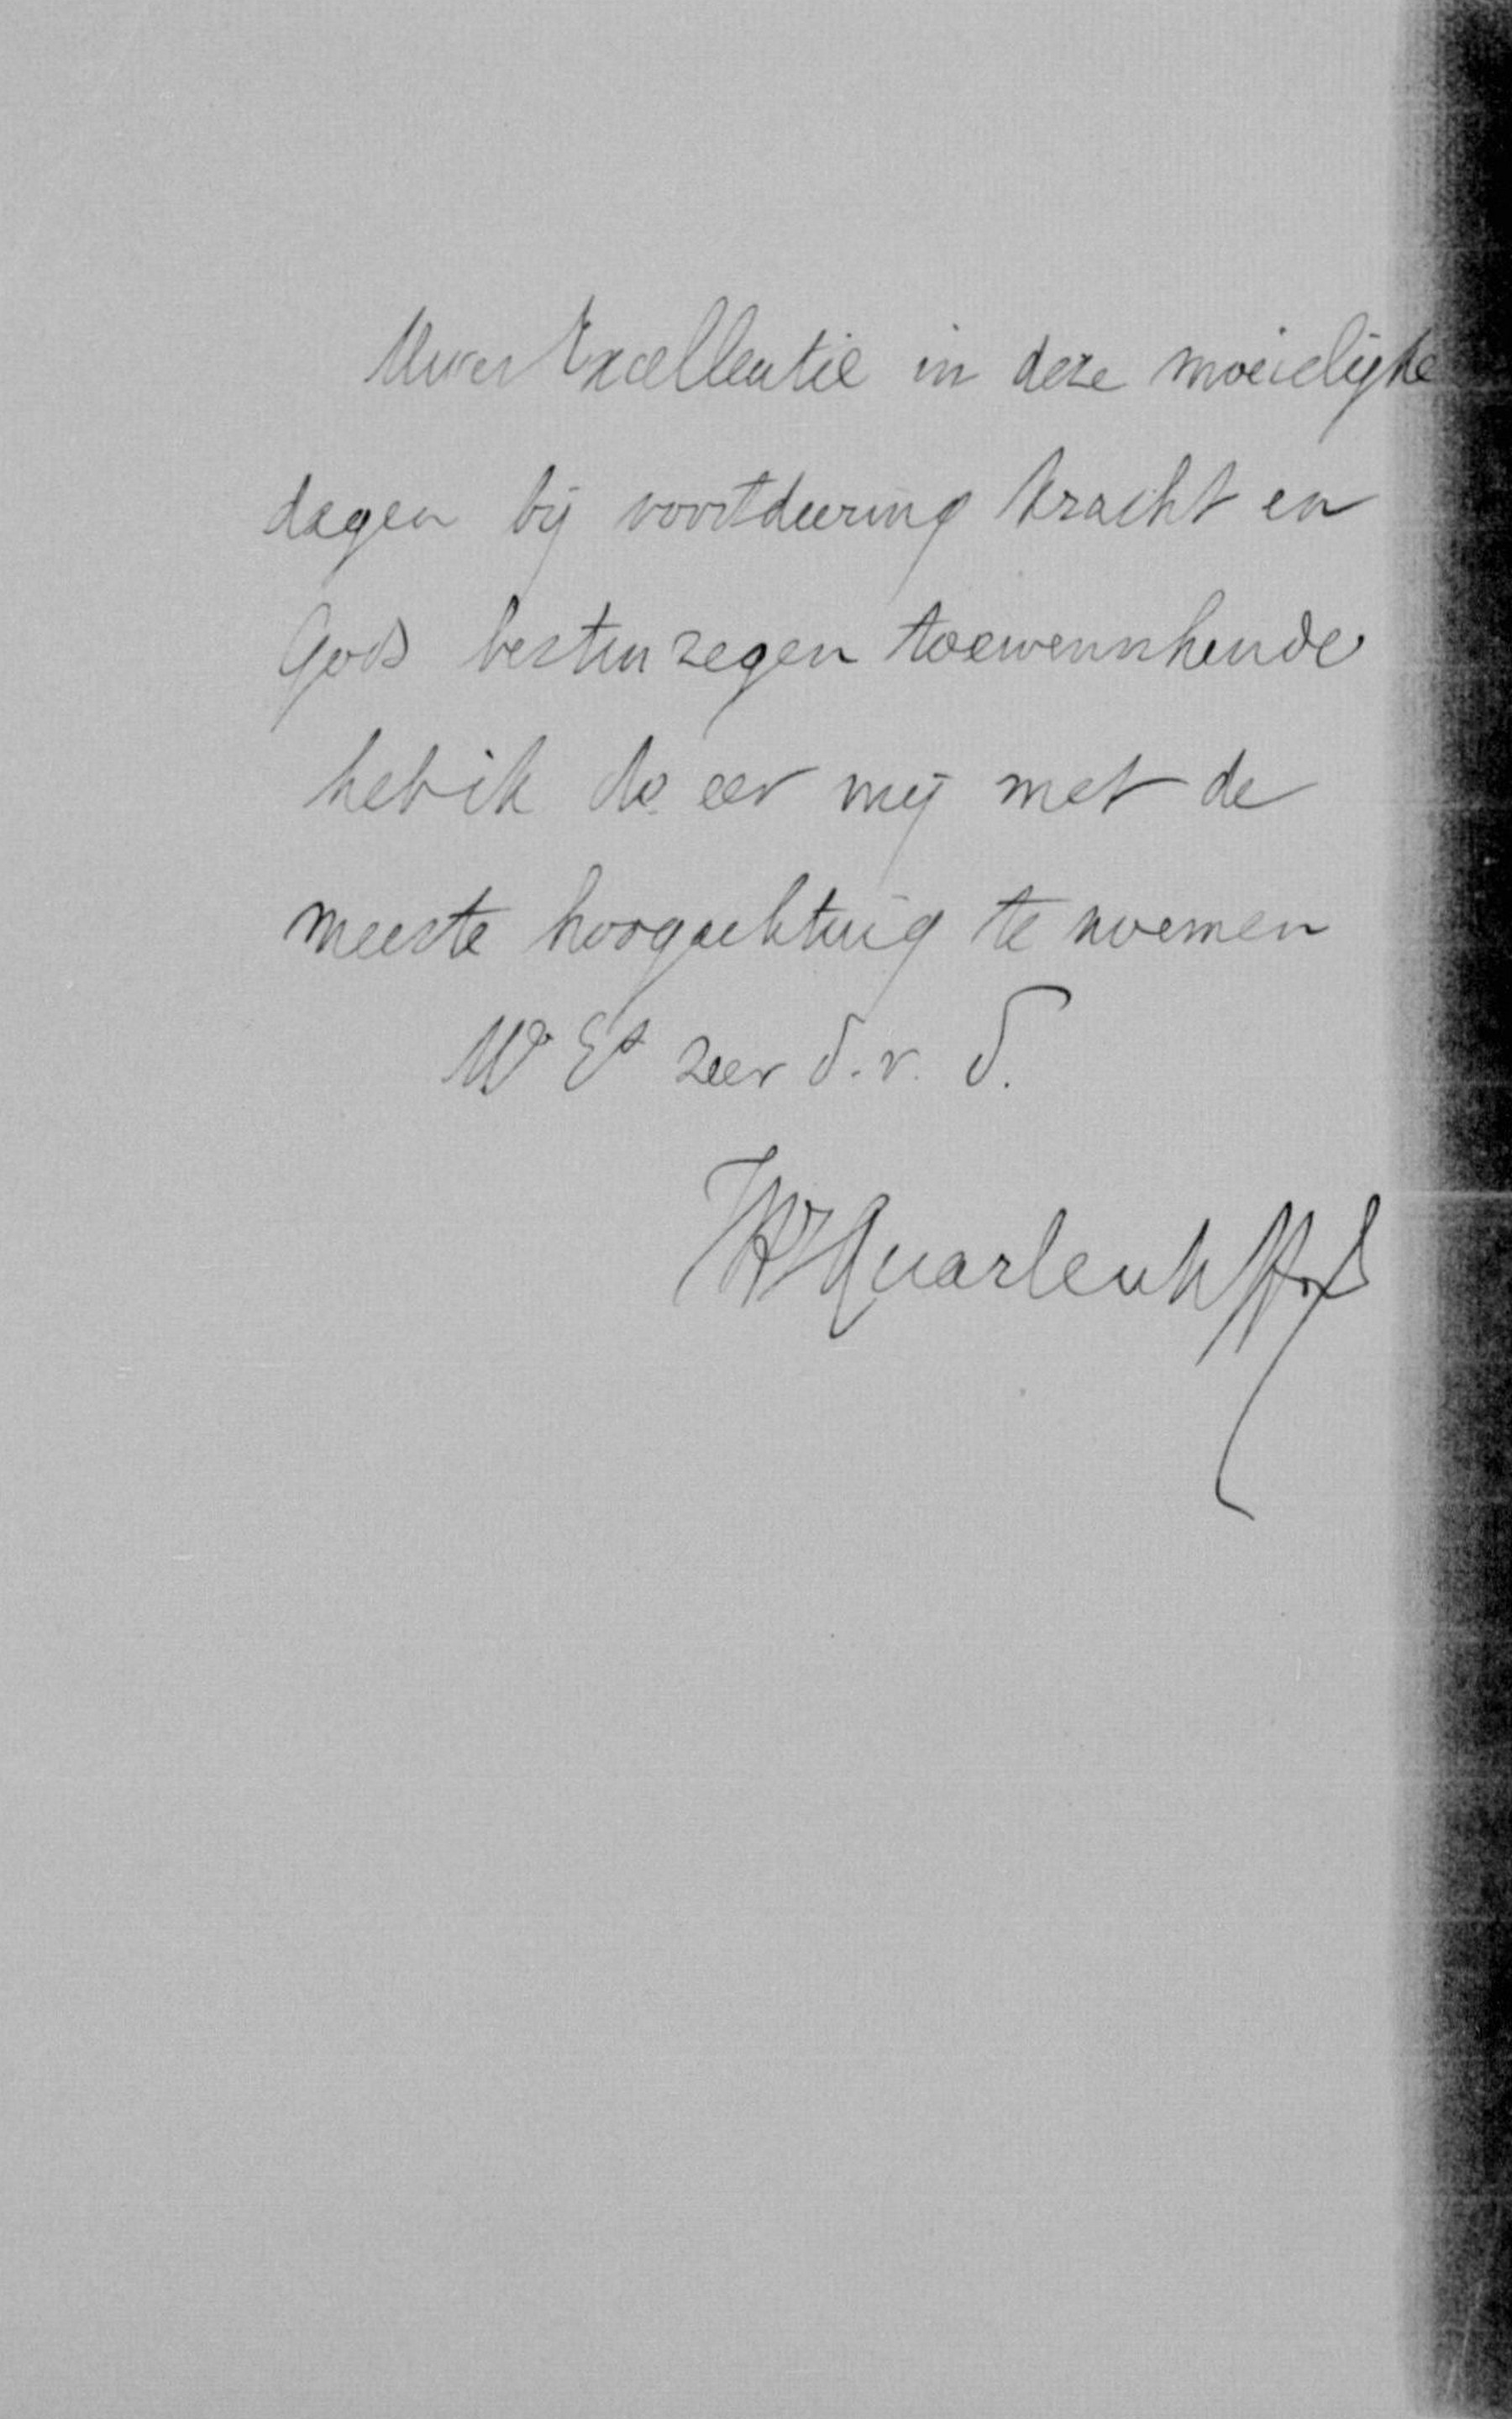 Uwer Excellentie in deze moeielijke
dagen bij voortduring kracht en
Gods besten zegen toewenschende
heb ik de eer mij met de
meeste hoogachting te noemen
Uw Ex zeer d. v. d.
Quarles v Ufford